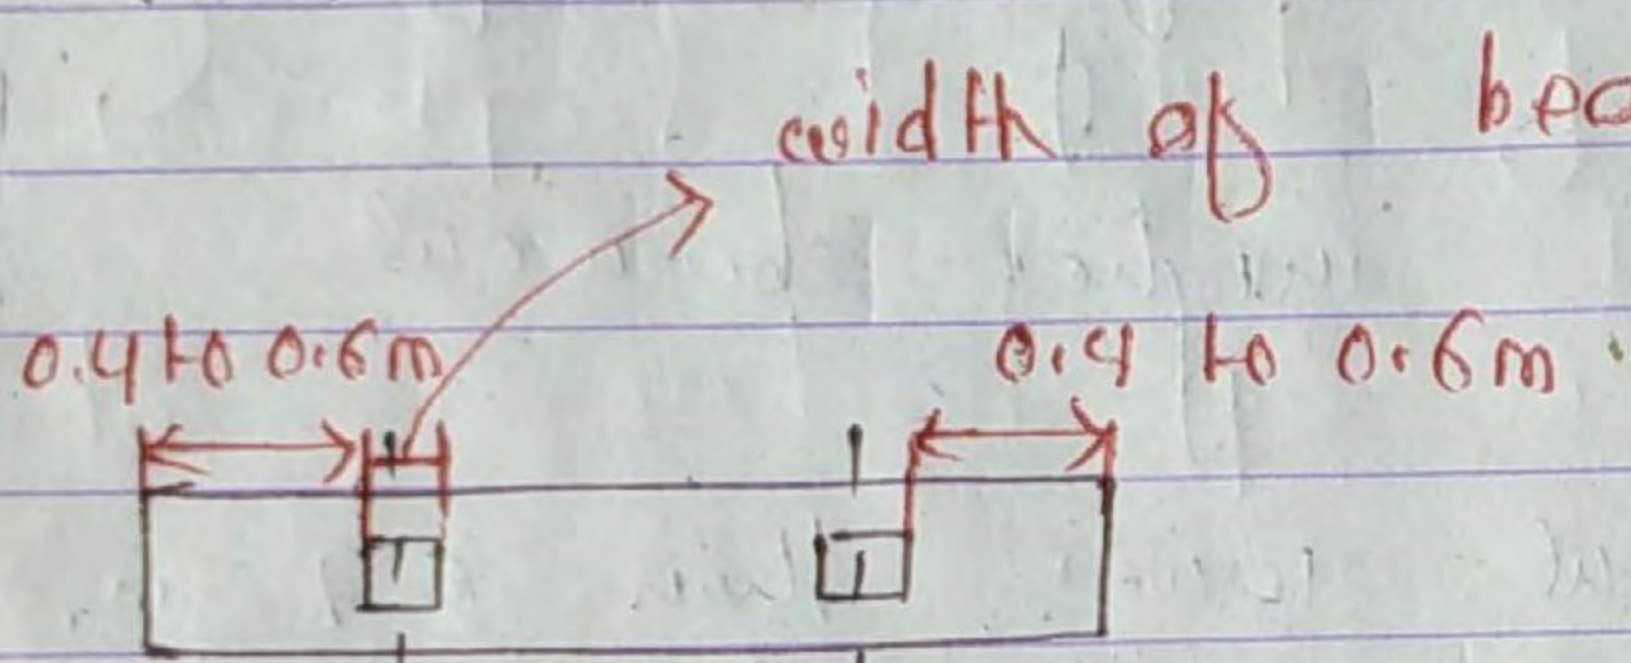 width of
0.4 to 0.6m 0.4 to 0.6m